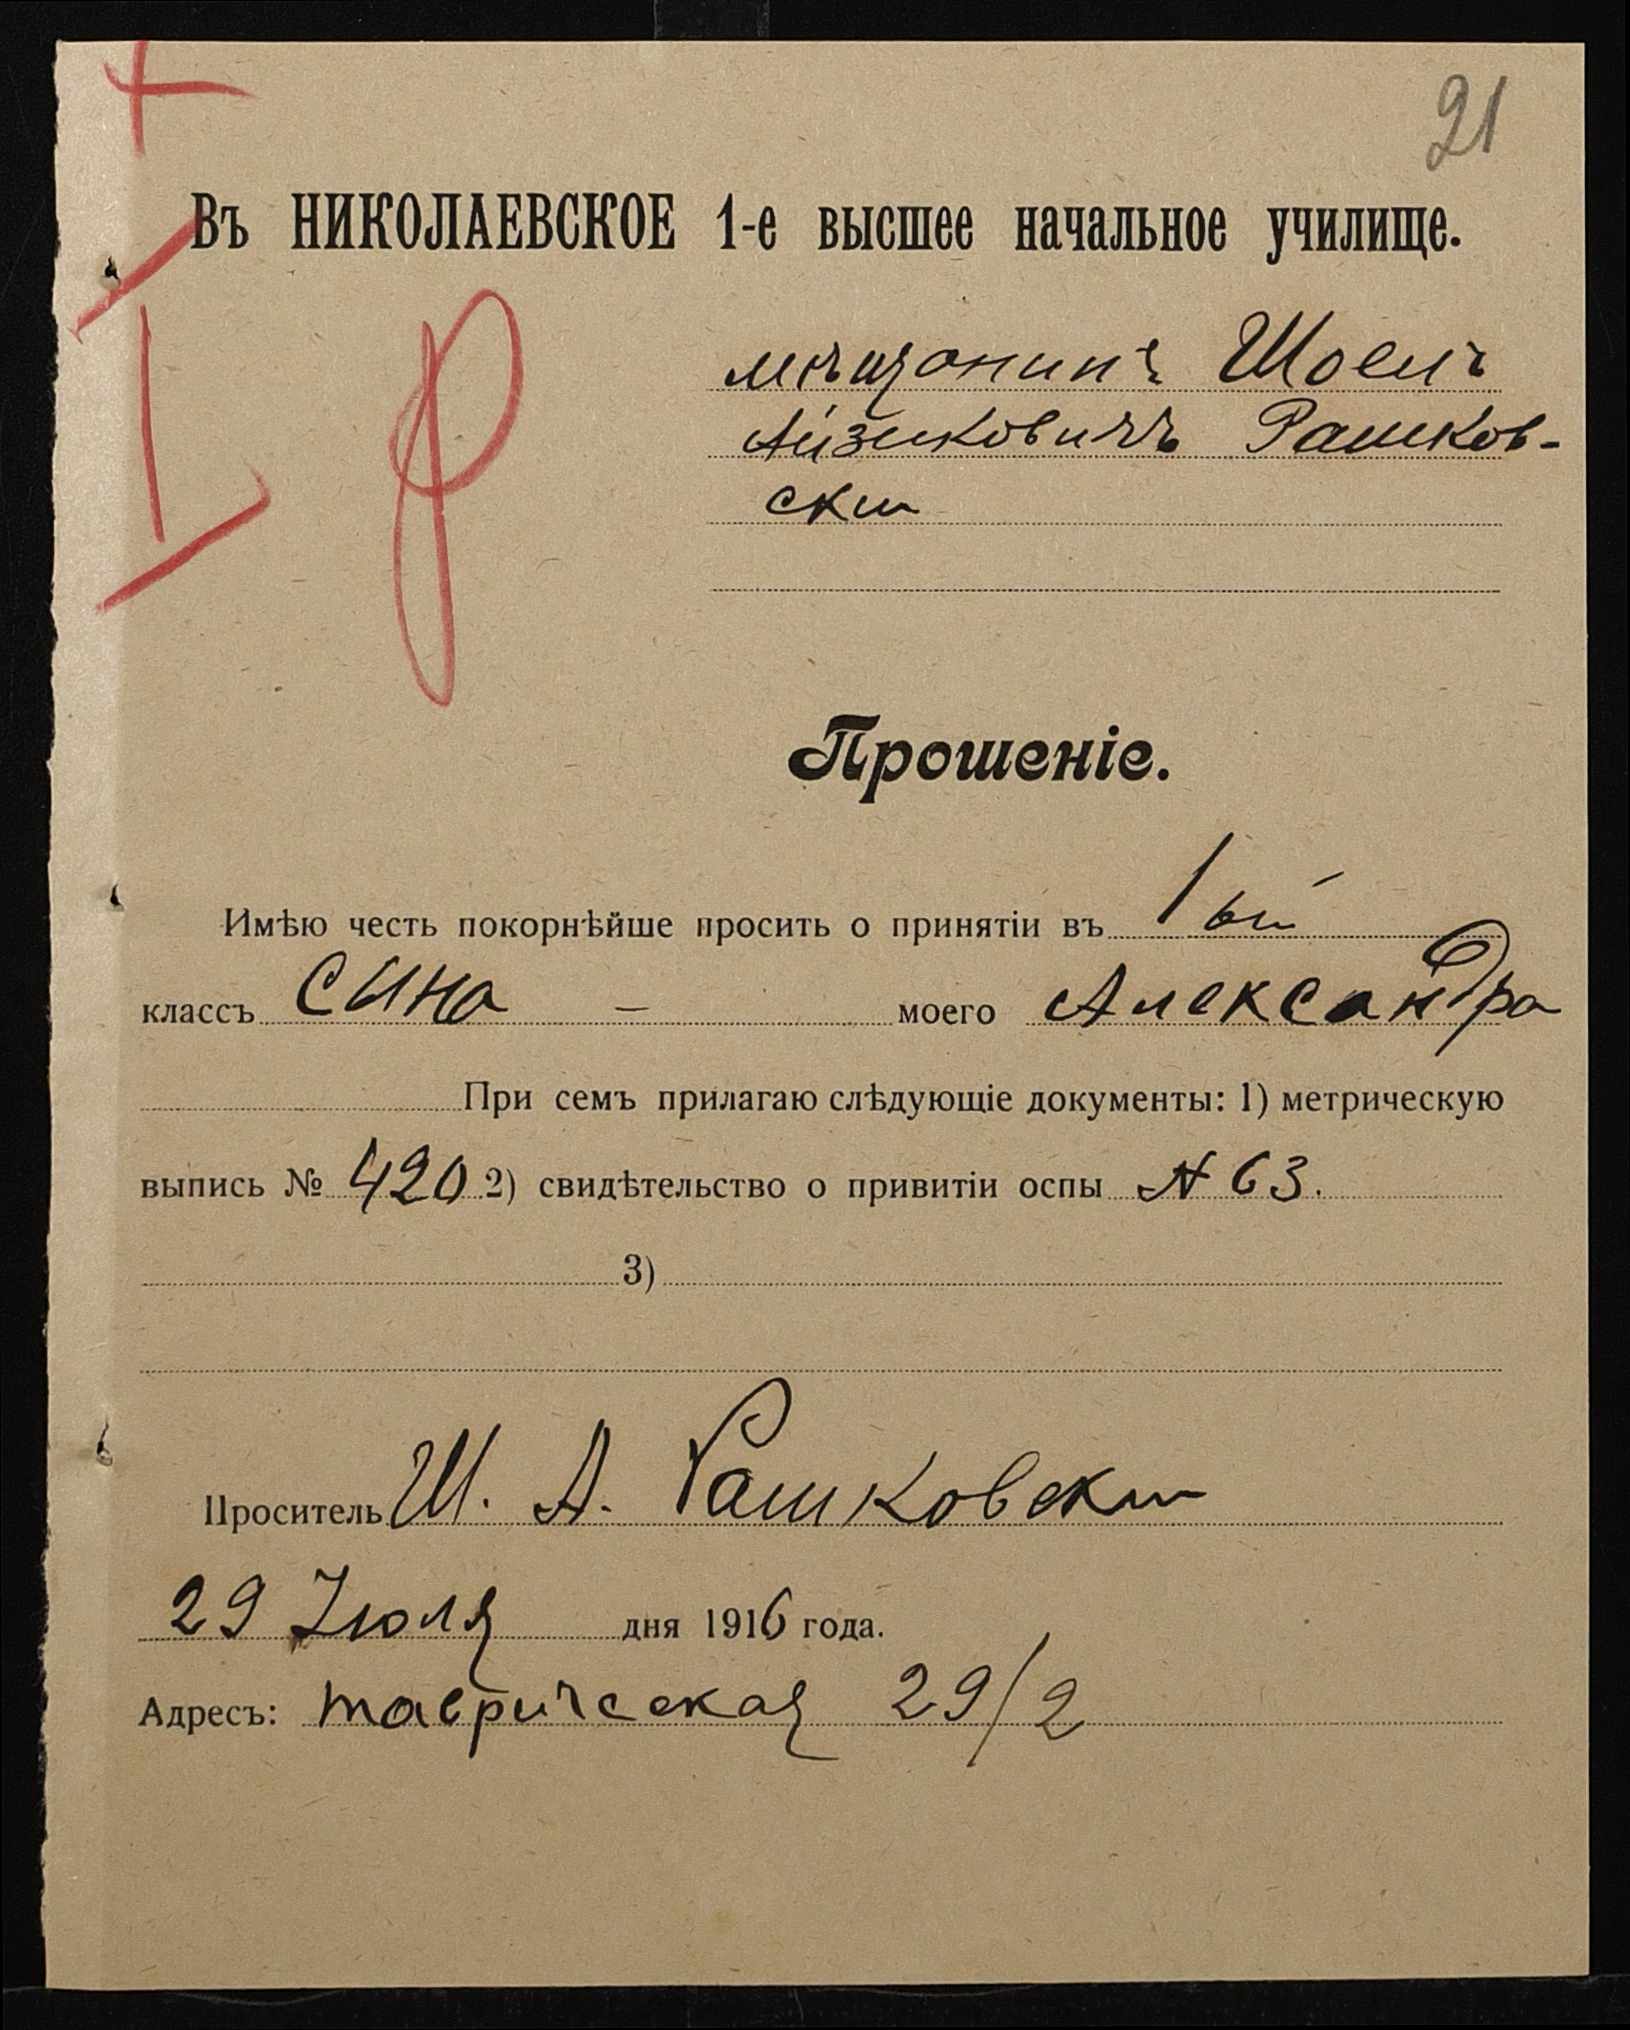 21
Въ НИКОЛАЕВСКОЕ 1-е высшее начальное училище.
I
мѣщанинъ Шоелъ
Айзиковичъ Рашков-
ски
Прошеніе.
Имѣю честь покорнѣйше просить о принятіи въ 1ый
классъ сына – моего Александра
При семъ прилагаю слѣдующіе документы: 1) метрическую
выпись № 420 2) свидѣтельство о привитіи оспы № 63.
3)
Проситель Ш. А. Рашковски
29 Іюля дня 1916 года.
Адресъ: таврическая 29/2